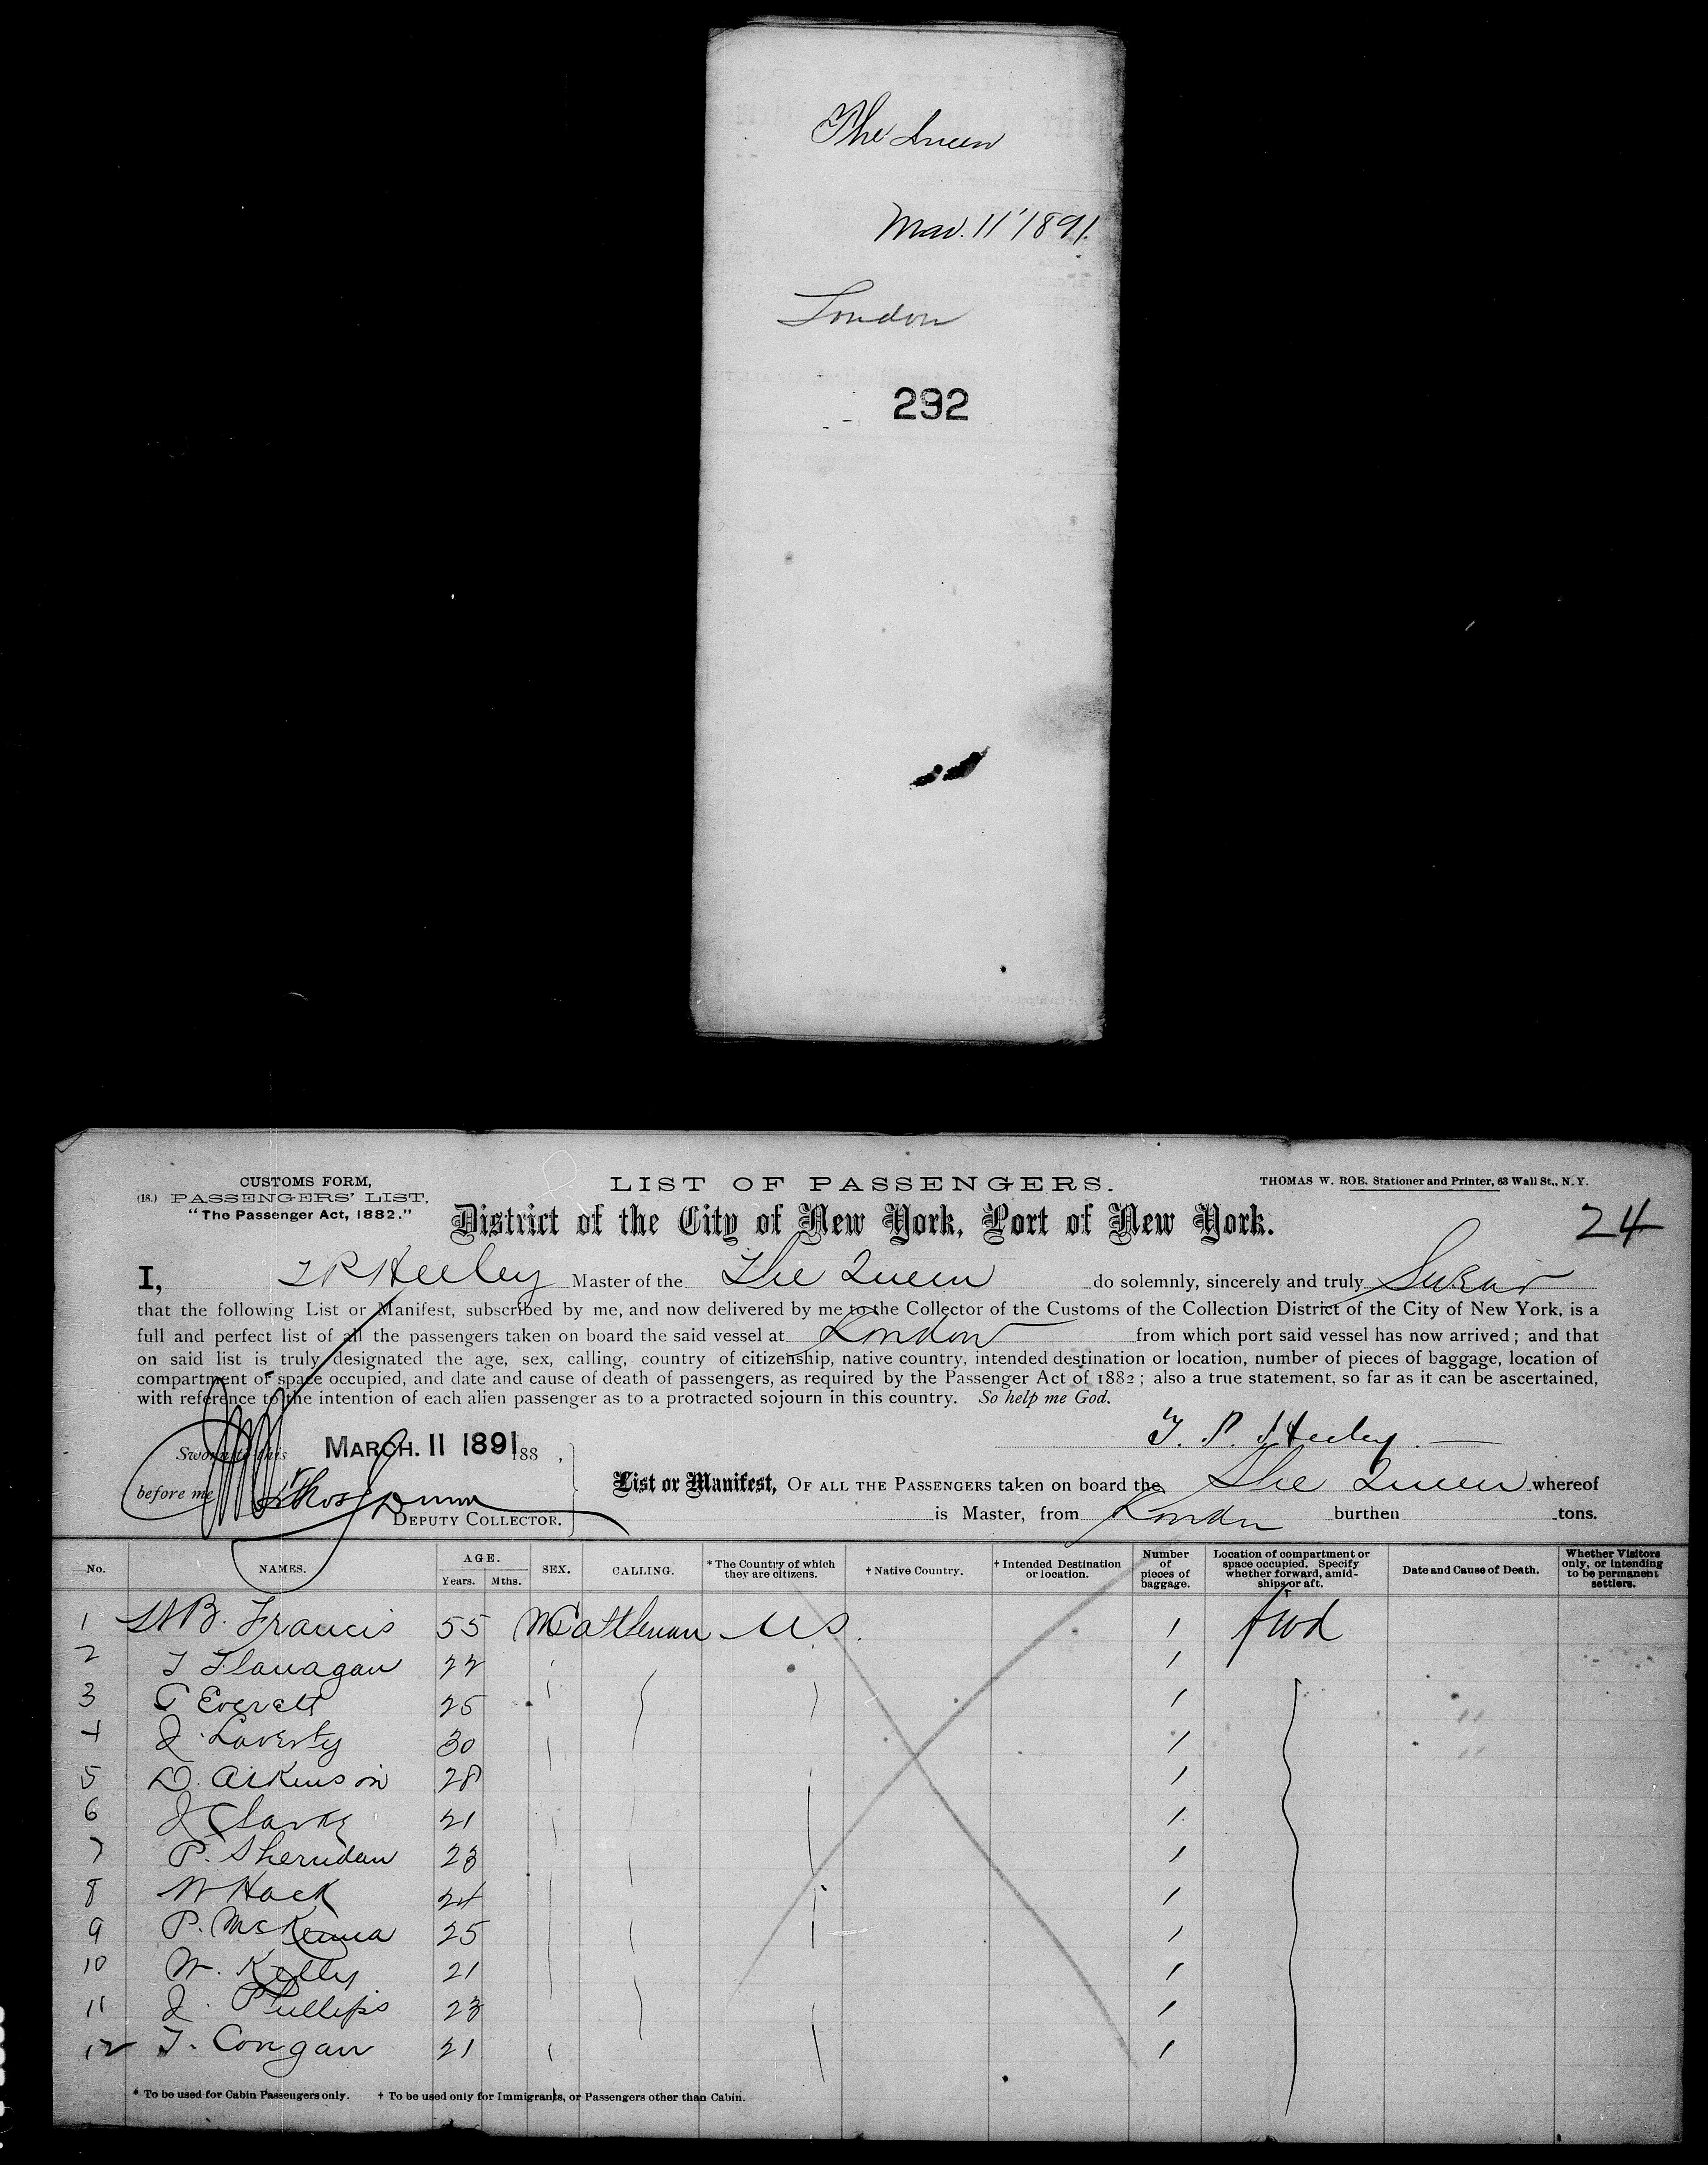 The Queen
Mar. 11 1891.
London
292
CUSTOMS FORM,
(18.) PASSENGERS' LIST,
"The Passenger Act, 1882."
LIST OF PASSENGERS.
THOMAS W. ROE. Stationer and Printer, 63 Wall St., N.Y.
District of the City of New York, Port of New York.
24
I, T R Heeley Master of the The Queen do solemnly, sincerely and truly Swear
that the following List or Manifest, subscribed by me, and now delivered by me to the Collector of the Customs of the Collection District of the City of New York, is a
full and perfect list of all the passengers taken on board the said vessel at London from which port said vessel has now arrived; and that
on said list is truly designated the age, sex, calling, country of citizenship, native country, intended destination or location, number of pieces of baggage, location of
compartment or space occupied, and date and cause of death of passengers, as required by the Passenger Act of 1882; also a true statement, so far as it can be ascertained,
with reference to the intention of each alien passenger as to a protracted sojourn in this country. So help me God.
T. R. Heeley.
Sworn to this MARCH. 11 1891 188 ,
before me Thos Dunn
DEPUTY COLLECTOR.
List or Manifest, OF ALL THE PASSENGERS taken on board the The Queen whereof
is Master, from London burthen tons.
No. NAMES. AGE. Years. Mths. SEX. CALLING. * The Country of which they are citizens. † Native Country. † Intended Destination or location. Number of pieces of baggage. Location of compartment or space occupied. Specify whether forward, amidships or aft. Date and Cause of Death. Whether Visitors only, or intending to be permanent settlers.
1 B. Francis 55 M Cattleman US. 1 fwd
2 T Flanagan 22 1
3 Everett 25 1
4 J. Laverty 30 1
5 D. Atkinson 28 1
6 J Clarke 21 1
7 P. Sherridan 23 1
8 W Hack 24 1
9 P. McKenna 25 1
10 W. Kelly 21 1
11 J. Phillips 23 1
12 T. Congan 21 1
* To be used for Cabin Passengers only. † To be used only for Immigrants, or Passengers other than Cabin.